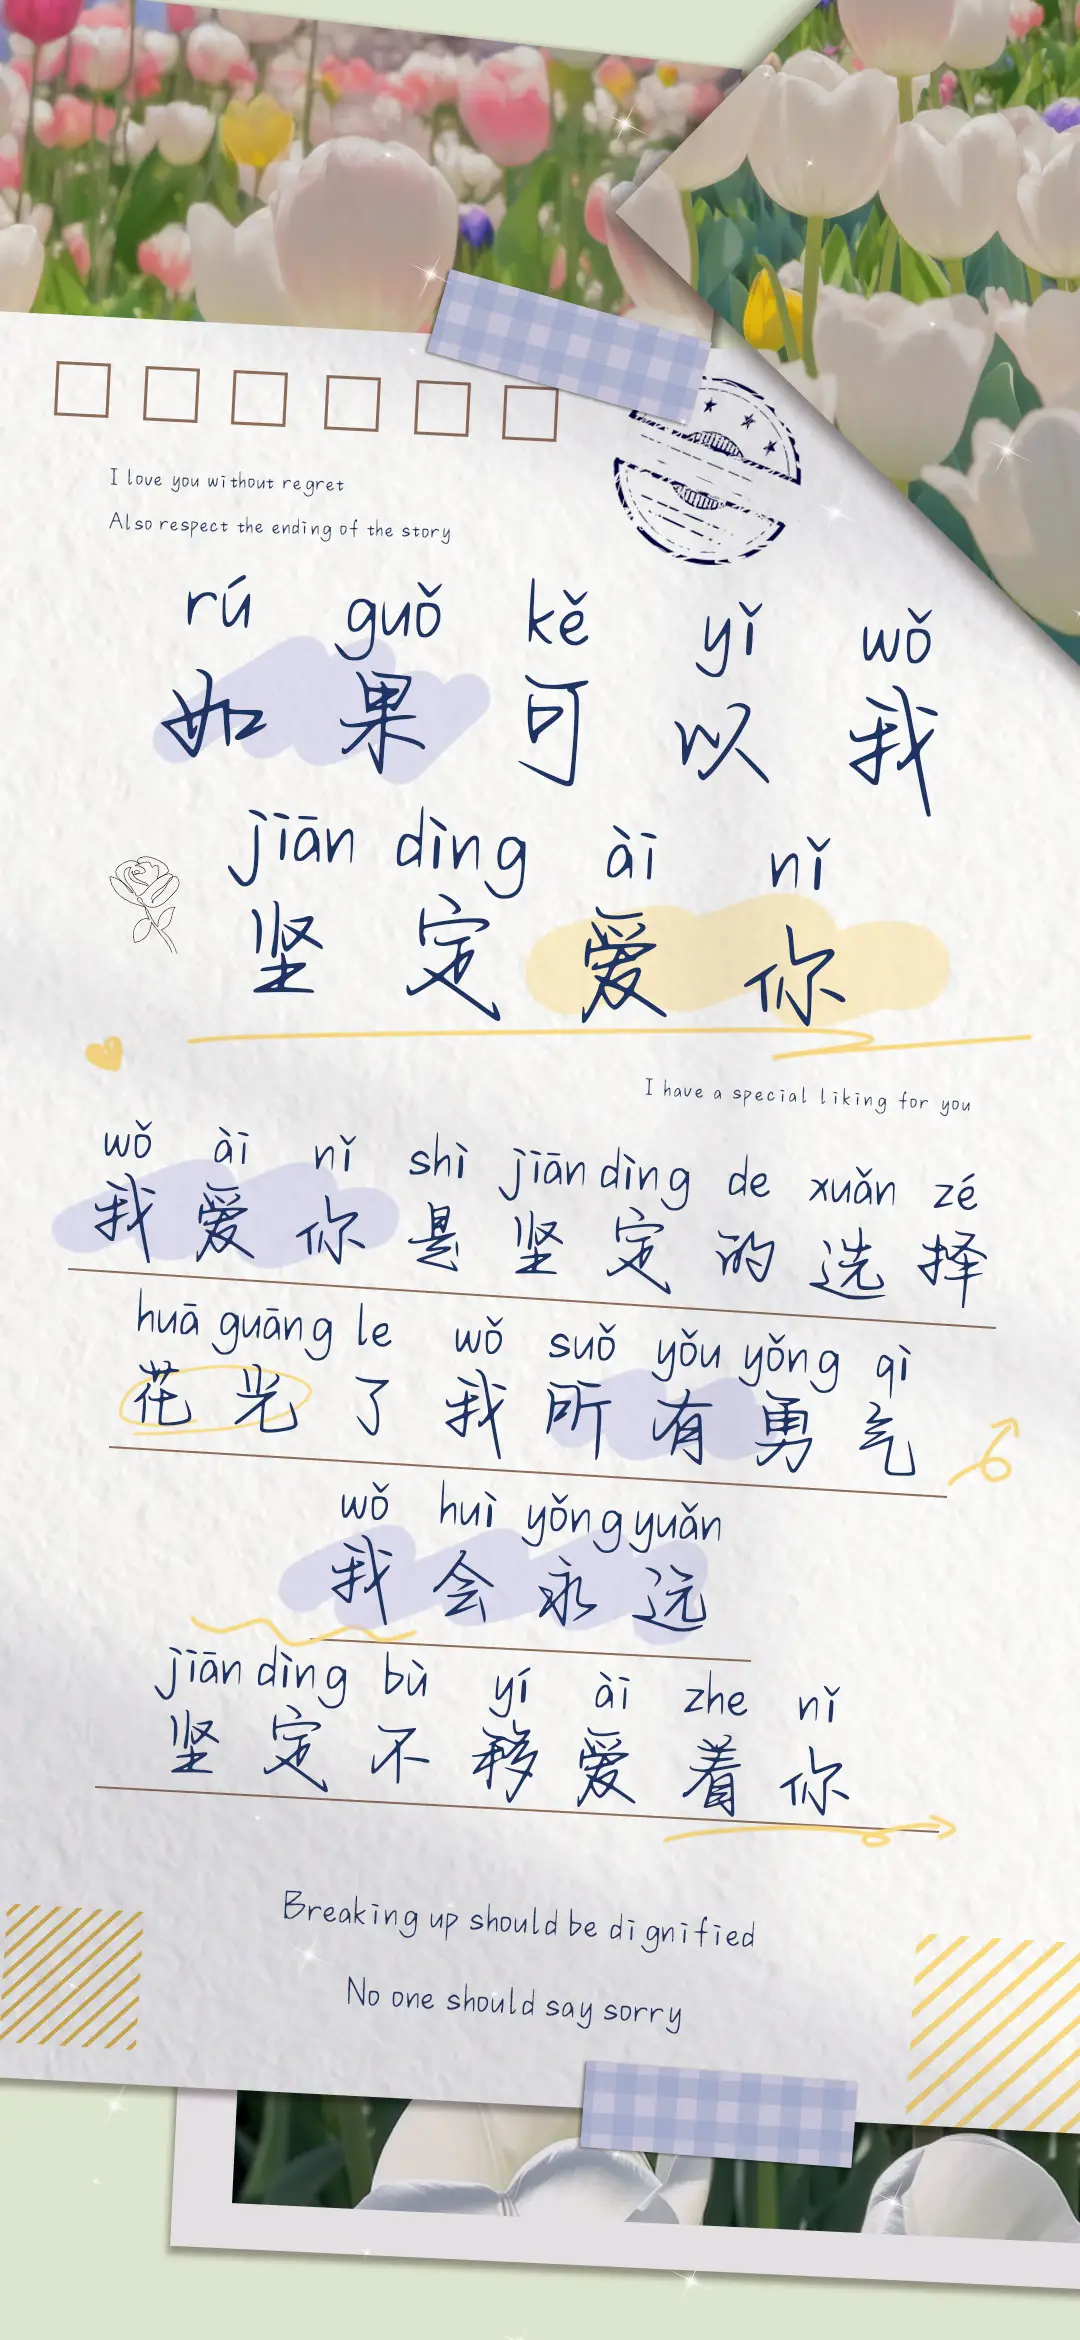 I love you without regret
Also respect the ending of the story
rú guǒ kě yǐ wǒ
如果可以我
jiān dìng ài nǐ
坚定爱你
I have a special liking for you
wǒ ài nǐ shì jiān dìng de xuǎn zé
我爱你是坚定的选择
huā guāng le wǒ suǒ yǒu yǒng qì
花光了我所有勇气
wǒ huì yǒng yuǎn
我会永远
jiān dìng bù yí ài zhe nǐ
坚定不移爱着你
Breaking up should be dignified
No one should say sorry